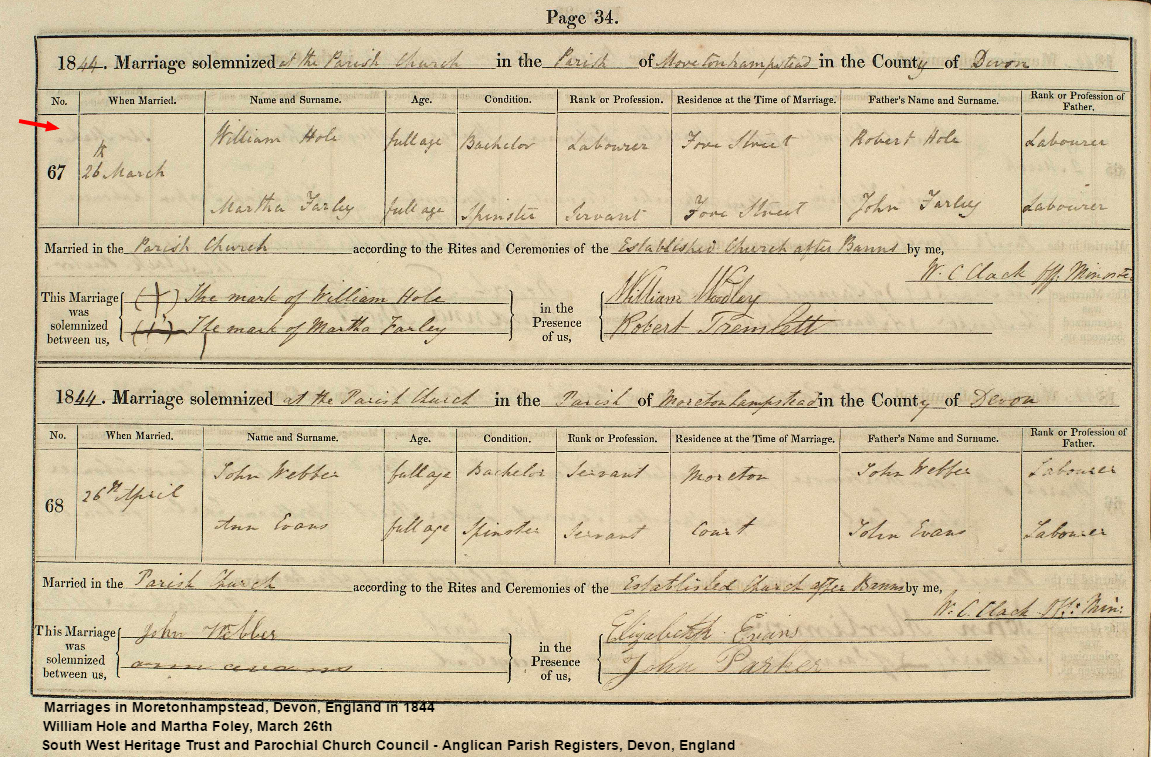 Page 34.
1844. Marriage solemnized at the Parish Church in the Parish of Moretonhampstead in the County of Devon
No. When Married. Name and Surname. Age. Condition. Rank or Profession. Residence at the Time of Marriage. Father's Name and Surname. Rank or Profession of Father.
William Hole full age Bachelor Labourer Fore Street Robert Hole Labourer
67 26th March
Martha Farley full age Spinster Servant Fore Street John Farley Labourer
Married in the Parish Church according to the Rites and Ceremonies of the Established Church after Banns by me,
W. C. Clack Off. Minister
This Marriage was solemnized between us, The mark of William Hole in the Presence of us, William Woolley
The mark of Martha Farley Robert Tremlett
1844. Marriage solemnized at the Parish Church in the Parish of Moretonhampstead in the County of Devon
No. When Married. Name and Surname. Age. Condition. Rank or Profession. Residence at the Time of Marriage. Father's Name and Surname. Rank or Profession of Father.
John Webber full age Bachelor Servant Moreton John Webber Labourer
68 26th April
Ann Evans full age Spinster Servant Court John Evans Labourer
Married in the Parish Church according to the Rites and Ceremonies of the Established Church after Banns by me,
W. C. Clack Off: Min:
This Marriage was solemnized between us, John Webber in the Presence of us, Elizabeth Evans
John Parker
Marriages in Moretonhampstead, Devon, England in 1844
William Hole and Martha Foley, March 26th
South West Heritage Trust and Parochial Church Council - Anglican Parish Registers, Devon, England